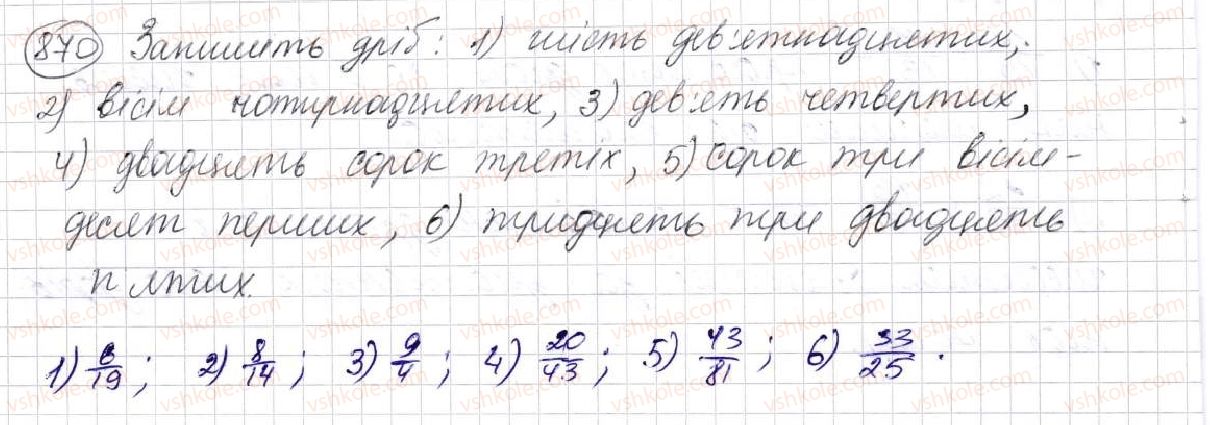 870 Запишіть дріб: 1) шість дев'ятнадцятих,
2) вісім чотирнадцятих, 3) дев'ять четвертих,
4) двадцять сорок третіх, 5) сорок три вісім-
десят перших, 6) тридцять три двадцять
п'ятих.
1) 6/19; 2) 8/14; 3) 9/4; 4) 20/43; 5) 43/81; 6) 33/25.